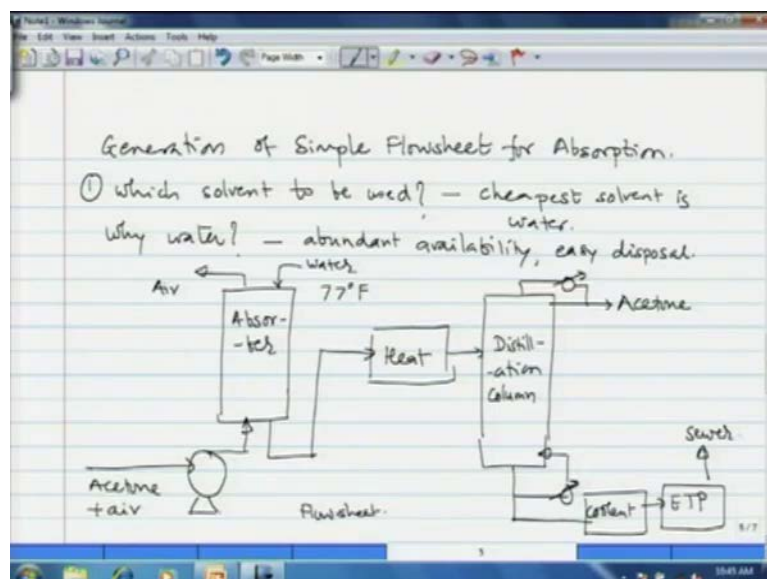 Note1 - Windows Journal
File Edit View Insert Actions Tools Help
Page Width
Generation of Simple Flowsheet for Absorption.
① which solvent to be used? — cheapest solvent is
water.
why water? — abundant availability, easy disposal.
Air
water
77°F
Absor-
-ber
Heat
Distill-
-ation
Column
Acetone
Acetone
+ air
Flowsheet.
Coolent
ETP
Sewer
5/7
5
10:45 AM